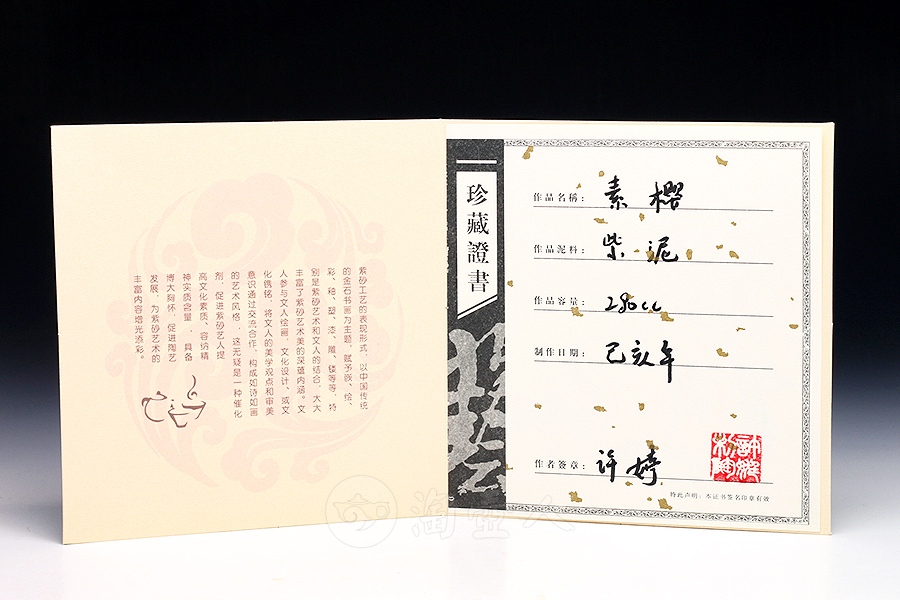 紫砂工艺的表现形式，以中国传统
的金石书画为主题，赋予嵌、绘、
彩、釉、塑、漆、雕、镂等等，特
别是紫砂艺术和文人的结合，大大
丰富了紫砂艺术美的深蕴内涵。文
人参与文人绘画，文化设计，或文
化镌铭，将文人的美学观点和审美
意识通过交流合作，构成如诗如画
的艺术风格，这无疑是一种催化
剂，促进紫砂艺人提
高文化素质、容纳精
神实质含量，具备
博大胸怀，促进陶艺
发展，为紫砂艺术的
丰富内容增光添彩。
珍藏證書
作品名稱：素樱
作品泥料：紫泥
作品容量：280cc
制作日期：己亥年
作者簽章：许婷
許婷制陶
特此声明：本证书签名印章有效
淘壶人